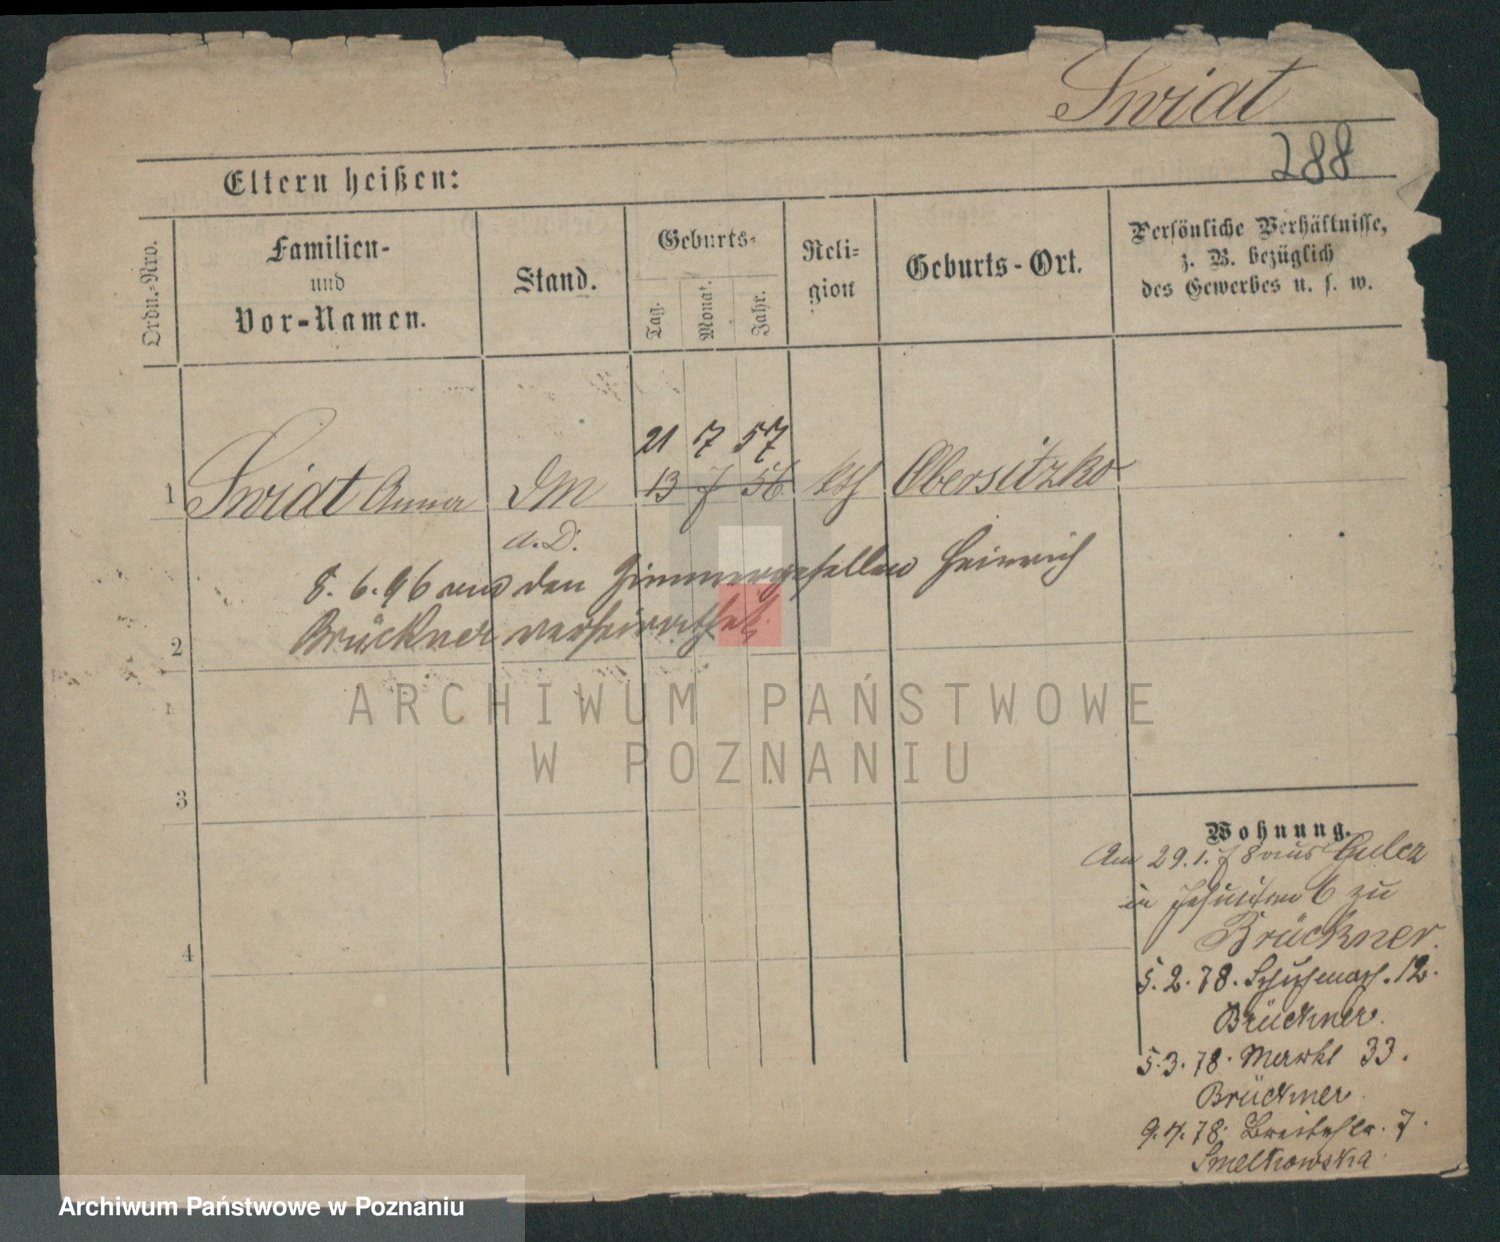 Swiat
288
Eltern heißen:
Ordn.-Nro.
Familien-
und
Vor-Namen.
Stand.
Geburts-
Tag.
Monat.
Jahr.
Reli-
gion
Geburts-Ort.
Persönliche Verhältnisse,
z. B. bezüglich
des Gewerbes u. s. w.
21 7 57
1 Swiat Anna DM 13 7 56 kth Obersitzko
a. D.
8. 6. 96 an den Zimmergesellen Heinrich
Brückner verheirathet
2
3
4
Wohnung.
Am 29. 1. 78 aus Gulcz
in Jesuiten 6 zu
Brückner.
5. 2. 78. Schuhmach. 12.
Brückner.
5. 3. 78. Markt 33.
Brückner
9. 4. 78. Breitestr. 7.
Smelkowska
ARCHIWUM PAŃSTWOWE
W POZNANIU
Archiwum Państwowe w Poznaniu